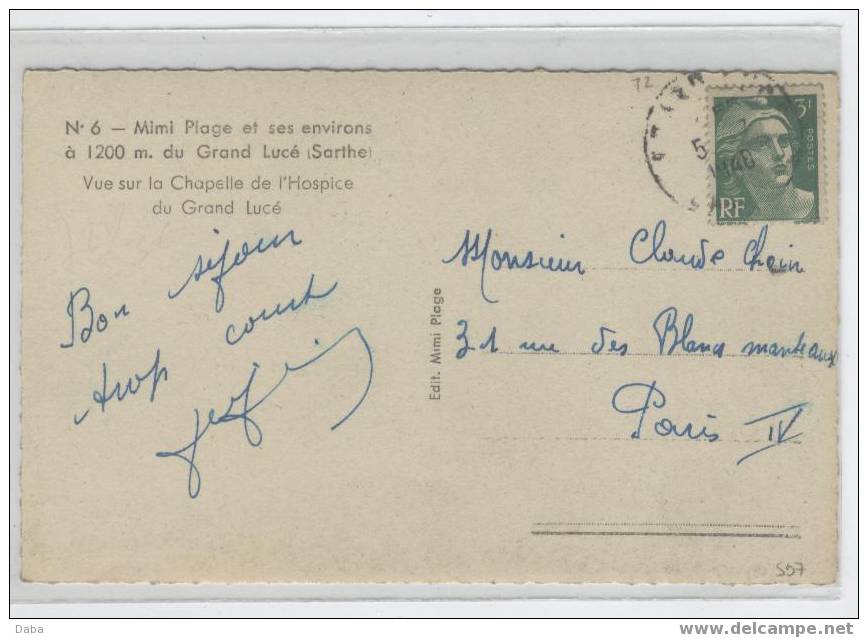 N° 6 — Mimi Plage et ses environs
à 1200 m. du Grand Lucé (Sarthe)
Vue sur la Chapelle de l'Hospice
du Grand Lucé
Bon séjour
trop court
Edit. Mimi Plage
72
3F
POSTES
RF
Monsieur Claude Chein
31 rue des Blancs manteaux
Paris IV
557
Daba
www.delcampe.net